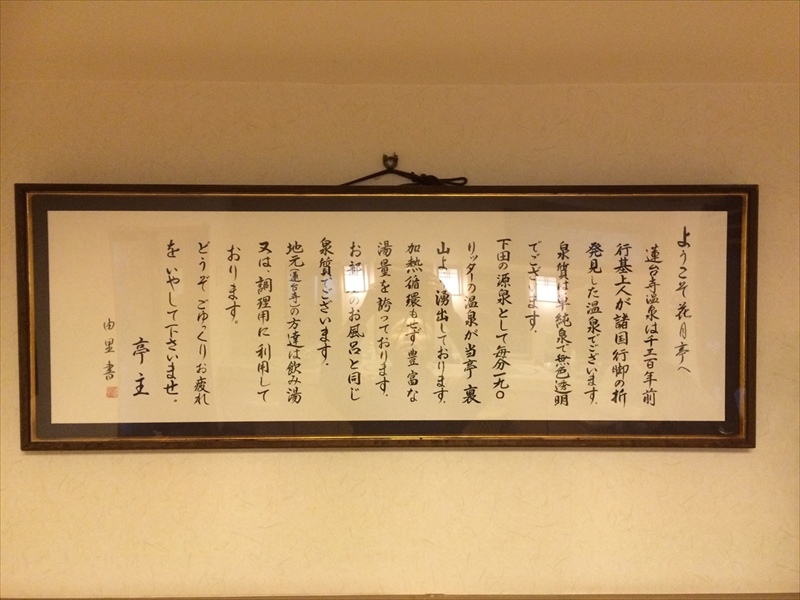 ようこそ花月亭へ
蓮台寺温泉は千三百年前
行基上人が諸国行脚の折
発見した温泉でございます。
泉質は、単純泉で無色透明
でございます。
下田の源泉として毎分一九〇
リッターの温泉が当亭裏
山より湧出しております。
加熱循環もせず豊富な
湯量を誇っております。
お部屋のお風呂と同じ
泉質でございます。
地元(蓮台寺)の方達は飲み湯
又は、調理用に利用して
おります。
どうぞごゆっくりお疲れ
をいやして下さいませ。
亭主
由里書